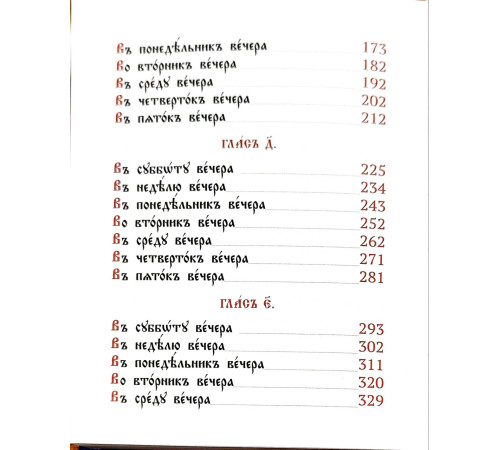 Въ понедѣ́льникъ ве́чера 173
Во вто́рникъ ве́чера 182
Въ сре́ду ве́чера 192
Въ четверто́къ ве́чера 202
Въ пято́къ ве́чера 212
Гла́съ д҃.
Въ суббѡ́ту ве́чера 225
Въ недѣ́лю ве́чера 234
Въ понедѣ́льникъ ве́чера 243
Во вто́рникъ ве́чера 252
Въ сре́ду ве́чера 262
Въ четверто́къ ве́чера 271
Въ пято́къ ве́чера 281
Гла́съ є҃.
Въ суббѡ́ту ве́чера 293
Въ недѣ́лю ве́чера 302
Въ понедѣ́льникъ ве́чера 311
Во вто́рникъ ве́чера 320
Въ сре́ду ве́чера 329